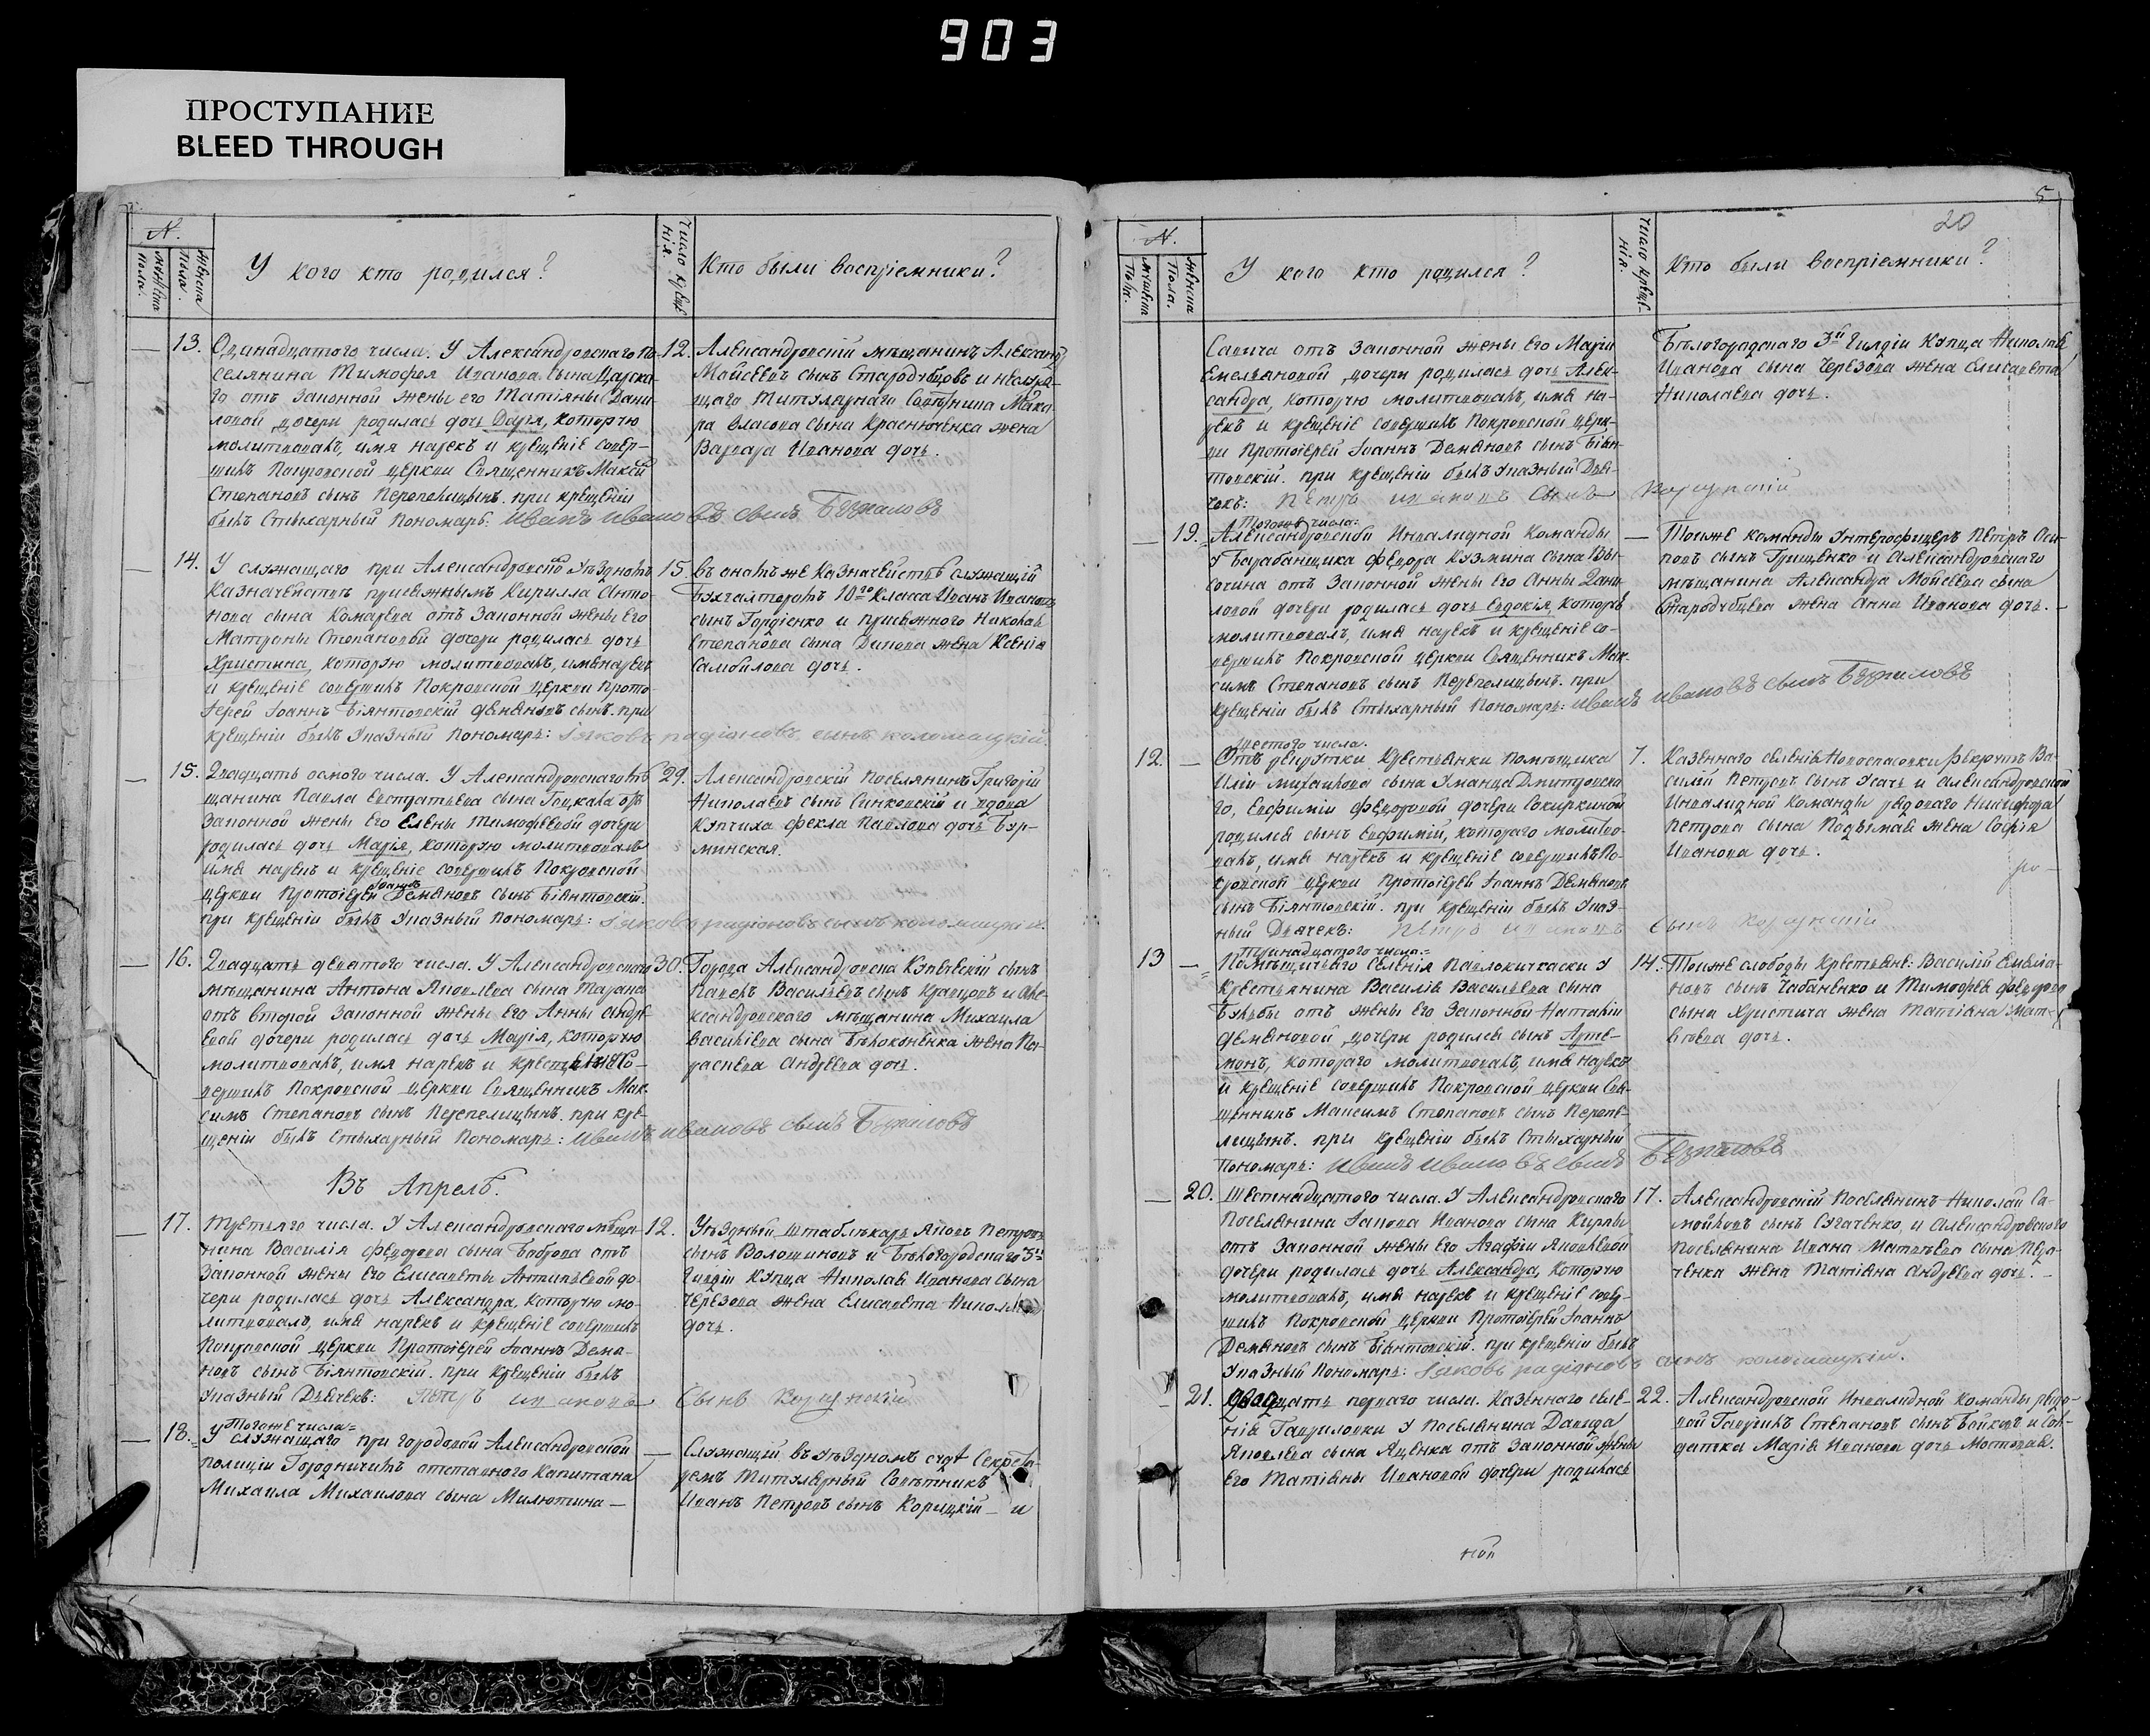 903
ПРОСТУПАНИЕ
BLEED THROUGH
N.
мужеска пола.
женска пола.
У кого кто родился?
Число крещенія.
Кто были воспріемники?
13. Одинадцатого числа. У Александровскаго по-
селянина Тимофея Иванова сына Царска-
го отъ законной жены его Татіяны Дани-
ловой дочери родилась дочь Дарія, которую
молитвовалъ, имя нарекъ и крещеніе совер-
шилъ Покровской церкви Священникъ Максим
Степановъ сынъ Перепелицынъ. при крещеніи
былъ Стихарный Пономарь: Иванъ Ивановъ сынъ
12. Александровскій мѣщанинъ Александ
Мойсеевъ сынъ Стародубцовъ и
щаго Титулярнаго Совѣтника Мака-
ра Власова сына Краснюченка жена
Варвара Иванова дочь.
14. У служащаго при Александровскомъ Уѣздномъ
Казначействѣ присяжнымъ Кирилла Анто-
нова сына Комарева отъ законной жены его
Матроны Степановой дочери родилась дочь
Христина, которую молитвовалъ, имя нарекъ
и крещеніе совершилъ Покровской церкви Прото-
іерей Іоаннъ Біянтовскій Демяновъ сынъ. при
крещеніи былъ Указный Пономарь: Іяковъ радіоновъ сынъ коломацкій.
15. въ ономъ же Казначействѣ служащій
Бухгалтеромъ 10го класса Иванъ Ивановъ
сынъ Гордіенко и присяжного Николая
Степанова сына Дикова жена Ксенія
Самойлова дочь.
15. Двадцать осмого числа. У Александровскаго мѣ-
щанина Павла Евстратьева сына Гоцкала отъ
законной жены его Елены Тимофеевой дочери
родилась дочь Марія, которую молитвовалъ
имя нарекъ и крещеніе совершилъ Покровской
церкви Протоіерей Іоаннъ Демяновъ сынъ Біянтовскій.
при крещеніи былъ Указный Пономарь: Іяковъ радіоновъ сынъ коломацкій.
29. Александровскій Поселянинъ Григорій
Николаевъ сынъ Синковскій и вдова
Купчиха Фекла Павлова дочь Бур-
минская.
16. Двадцать девятого числа. У Александровскаго
мѣщанина Антона Яковлева сына Тарана
отъ второй законной жены его Анны Андре-
евой дочери родилась дочь Марія, которую
молитвовалъ, имя нарекъ и крещеніе со-
вершилъ Покровской церкви Священникъ Мак-
симъ Степановъ сынъ Перепелицынъ. при кре-
щеніи былъ Стихарный Пономарь: Иванъ Ивановъ сынъ
30. Города Александровска Купеческій сынъ
Павелъ Васильевъ сынъ Кравцовъ и Але-
ксандровского мѣщанина Михаила
Васильева сына Бѣлоконенка жена Па-
раскева Андреева дочь.
Въ Апрелѣ.
17. Третьяго числа. У Александровскаго мѣща-
нина Василія Федорова сына Боброва отъ
законной жены его Елисаветы Антипьевой до-
чери родилась дочь Александра, которую мо-
литвовалъ, имя нарекъ и крещеніе совершилъ
Покровской церкви Протоіерей Іоаннъ Демя-
новъ сынъ Біянтовскій. при крещеніи былъ
Указный Дьячекъ: Петръ Ивановъ Сынъ
12. Уѣздный Штаблѣкарь Яковъ Петровъ
сынъ Волошиновъ и Бѣлогородскаго 3й
Гилдіи Купца Николая Иванова сына
Черезова жена Елисавета Никол
дочь.
18. Тогоже числа
У служащаго при городовой Александровской
полиціи Городничимъ отставного Капитана
Михаила Михаилова сына Милютина —
Служащій въ Уѣздномъ судѣ Секрета-
ремъ Титулярный Совѣтникъ
Иванъ Петровъ сынъ Корицкій — и
5
20
N.
мужеска пола.
женска пола.
У кого кто родился?
Число крещенія.
Кто были воспріемники?
Савича отъ законной жены его Маріи
Емельяновой дочери родилась дочь Алек-
сандра, которую молитвовалъ, имя на-
рекъ и крещеніе совершилъ Покровской церк-
ви Протоіерей Іоаннъ Демяновъ сынъ Біян-
товскій. при крещеніи былъ Указный Дья-
чекъ: Петръ Ивановъ Сынъ
Бѣлогородскаго 3й Гилдіи Купца Николая
Иванова сына Черезова жена Елисавета
Николаева дочь.
19. Тогоже числа.
Александровской Инвалидной Команды
У Барабанщика Федора Кузмина сына Вы-
сочина отъ законной жены его Анны Дани-
ловой дочери родилась дочь Евдокія, котору
молитвовалъ, имя нарекъ и крещеніе со-
вершилъ Покровской церкви Священникъ Мак-
симъ Степановъ сынъ Перепелицынъ. при
крещеніи былъ Стихарный Пономарь: Иванъ Ивановъ сынъ
Тоиже команды Унтерофицеръ Петръ Оси-
повъ сынъ Грищенко и Александровскаго
мѣщанина Александра Мойсеева сына
Стародубцева жена Анна Иванова дочь. —
12. Шестого числа.
Отъ рекрутки Крестьянки Помѣщика
Иліи Михаилова сына Уманца Дмитровска-
го, Евфиміи Федоровой дочери Сокиркиной
родился сынъ Евфимій, котораго молитво-
валъ, имя нарекъ и крещеніе совершилъ По-
кровской церкви Протоіерей Іоаннъ Демяновъ
сынъ Біянтовскій. при крещеніи былъ Указ-
ный Дьячекъ: Петръ Ивановъ Сынъ
7. Казеннаго селенія Новоспасовки рекрутъ Ва-
силій Петровъ сынъ Усачъ и Александровской
Инвалидной Команды рядоваго Никифора
Петрова сына Подъымая жена Софія
Иванова дочь.
13 Тринадцатого числа.
Помѣщичьяго селенія Павлокичкаски У
Крестьянина Василія Васильева сына
отъ жены его законной Наталіи
Демяновой дочери родился сынъ Арте-
монъ, котораго молитвовалъ, имя нарекъ
и крещеніе совершилъ Покровской церкви Свя-
щенникъ Максимъ Степановъ сынъ Перепе-
лицынъ. при крещеніи былъ Стихарный
Пономарь: Иванъ Ивановъ сынъ
14. Тоиже слободы Крестьяне: Василій Емелья-
новъ сынъ Чабаненко и Тимофея Федорова
сына Христича жена Татіяна Мат-
вѣева дочь.
20. Шестнадцатого числа. У Александровскаго
Поселянина Іакова Иванова сына Кирпы
отъ законной жены его Агафіи Яковлевой
дочери родилась дочь Александра, которую
молитвовалъ, имя нарекъ и крещеніе совер-
шилъ Покровской церкви Протоіерей Іоаннъ
Демяновъ сынъ Біянтовскій. при крещеніи былъ
Указный Пономарь: Іяковъ радіоновъ сынъ коломацкій.
17. Александровскій Поселянинъ Николай Са-
мойловъ сынъ Сугаченко, и Александровскаго
поселянина Ивана Матвѣева сына
ченка жена Татіяна Андреева дочь. —
21. Двадцать перваго числа. Казеннаго селе-
нія Гавриловки У Поселянина Давида
Яковлева сына Яценка отъ законной жены
его Татіяны Ивановой дочери родилась
22. Александровской Инвалидной Команды рядо-
вой Гавріилъ Степановъ сынъ Бойковъ и Сол-
датка Марія Иванова дочь